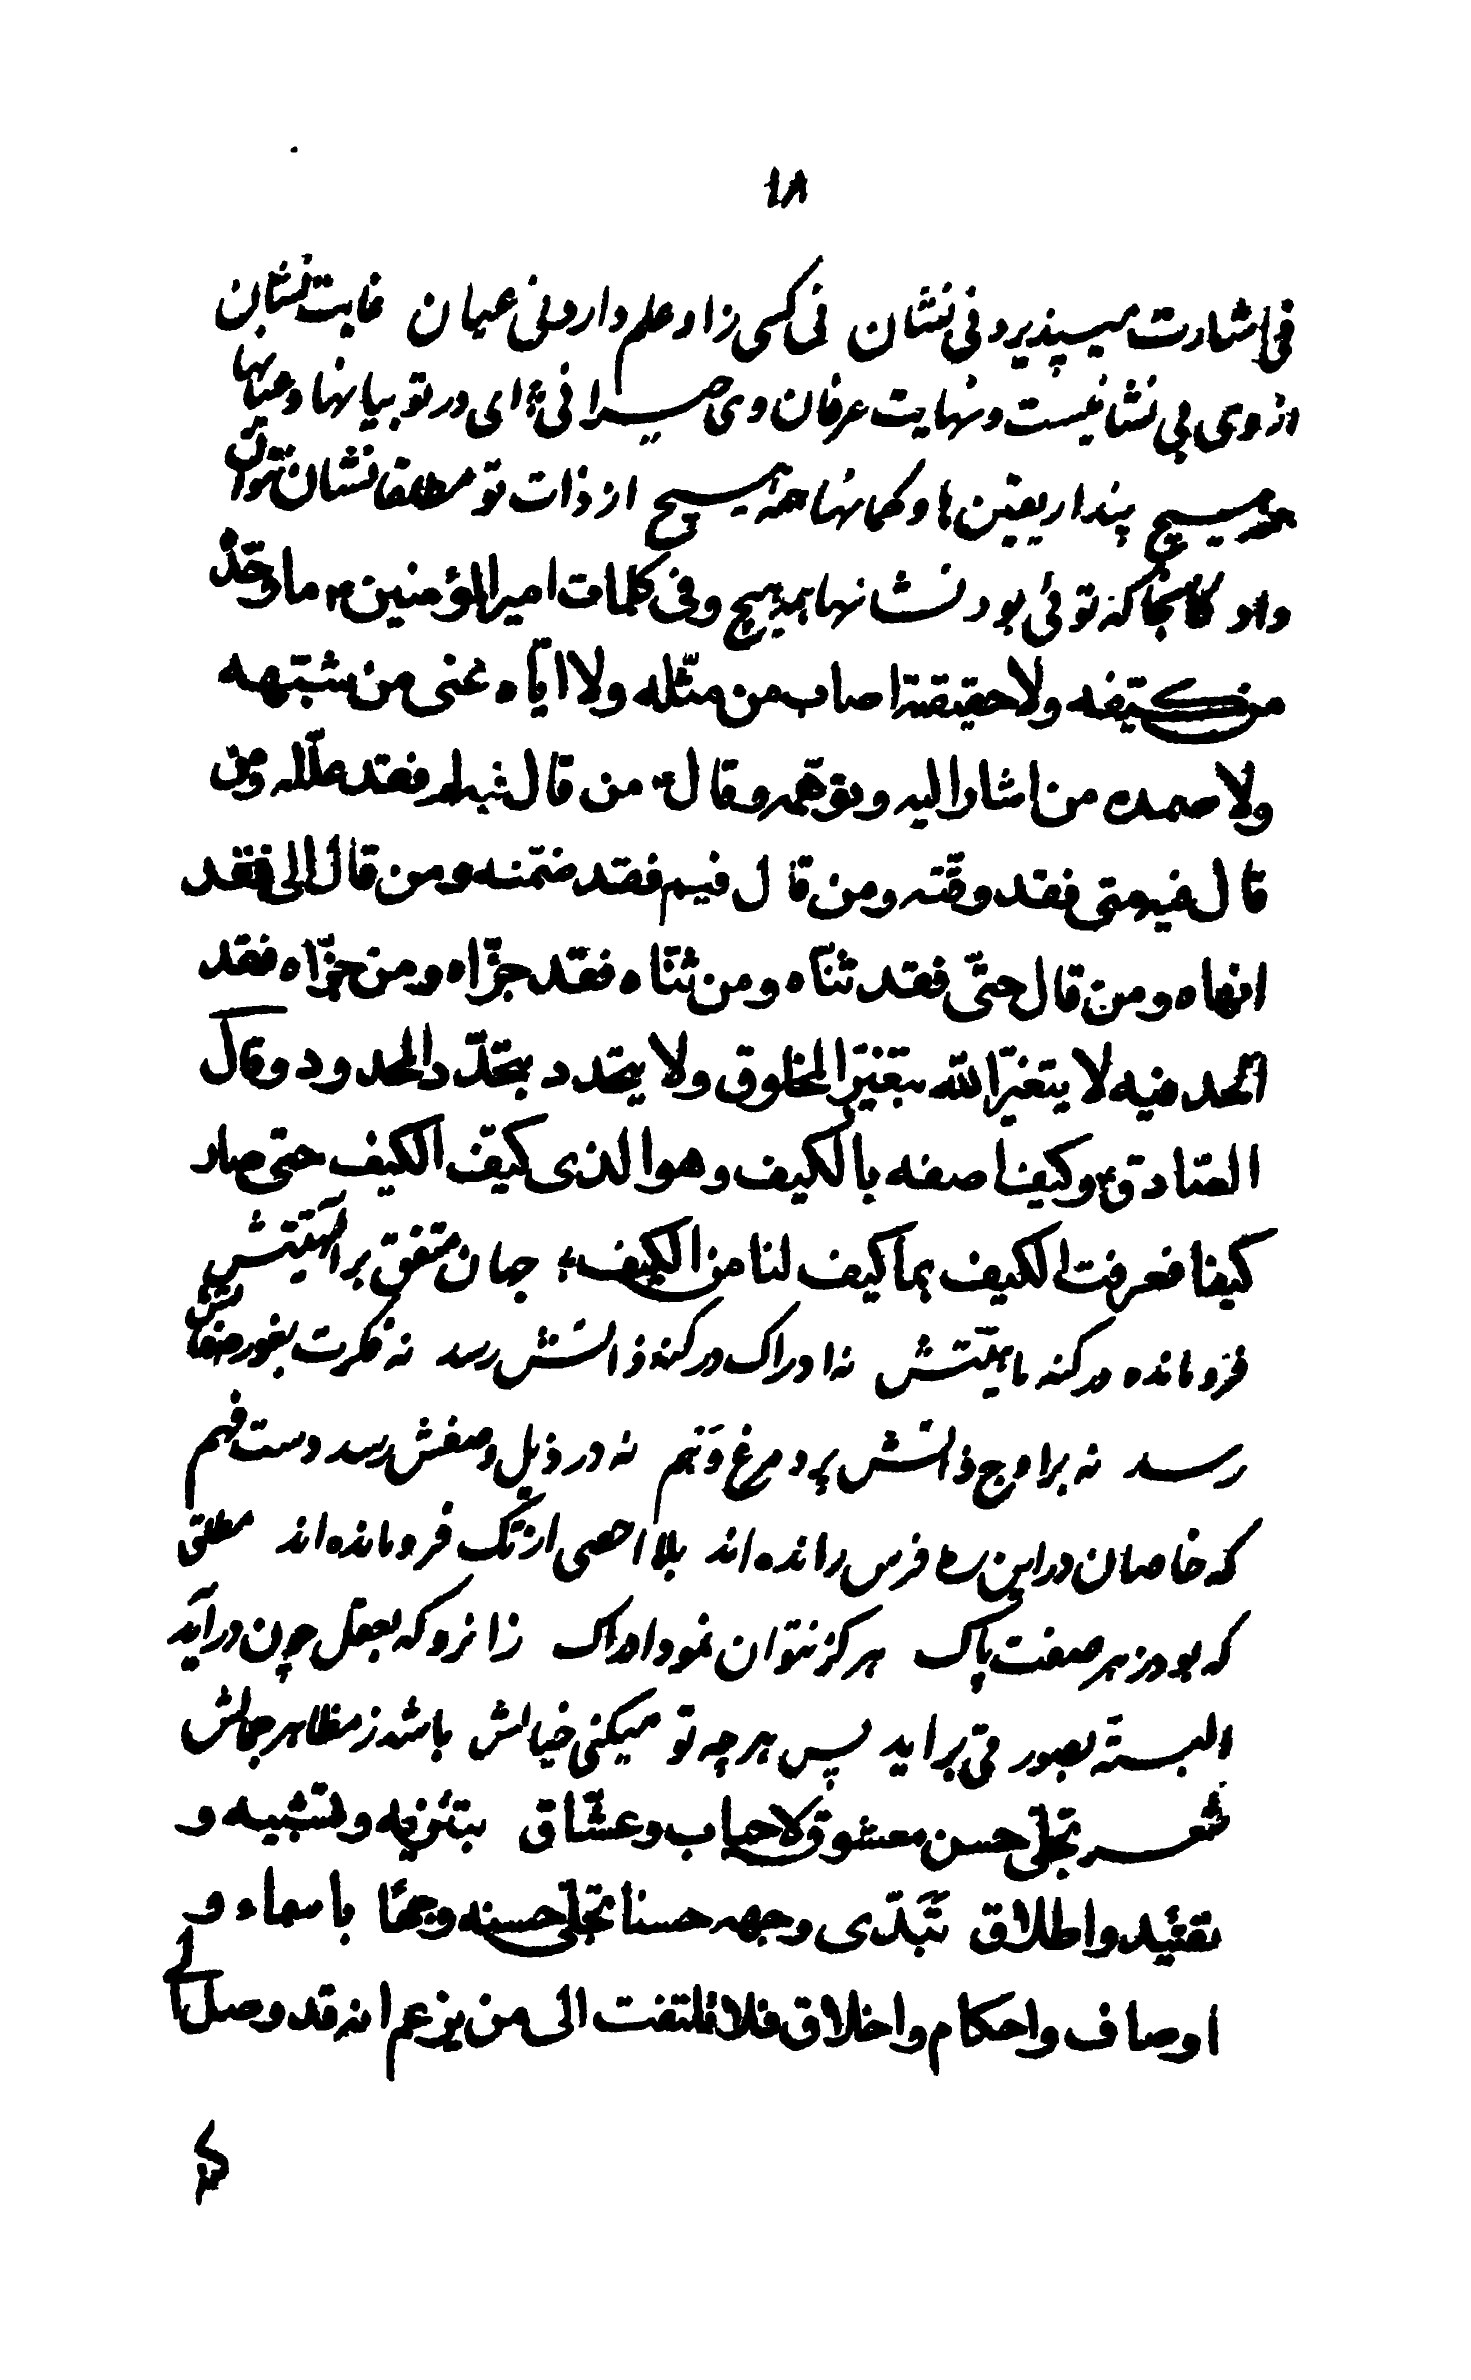 ١٨
نی اشارت میپذیرد نی نشان نی کسی زاو علم دارد نی عیان غایت نشان
از وی بی نشانیست و نهایت عرفان وی حیرانی ای در تو بیانها و عیانها
همه هیچ پندار یقین ها و گمانها همه هیچ از ذات تو مطلقا نشان نتوان
داد کانجا که توئی بود نشانها همه هیچ و فی کلمات امیر المؤمنین ع ما وحّده
من کیّفه ولا حقیقته اصاب من مثّله ولا ایّاه عنی من شبّهه
ولا صمده من اشار الیه وتوهّمه وقال ع من قال فقد علّله ومن
قال فیه متی فقد وقّته ومن قال فیم فقد ضمّنه ومن قال الی فقد
انهاه ومن قال حتّی فقد ثنّاه ومن ثنّاه فقد جزّاه ومن جزّاه فقد
الحد فیه لا یتغیّر الله بتغیّر المخلوق ولا یتحدد بتحدّد المحدود وقال
الصّادق ع وکیف اصفه بالکیف وهو الذی کیّف الکیف حتی صار
کیفا فعرفت الکیف بما کیف لنا من الکیف جهان متفق بر الهیّتش
فرو مانده در کنه ماهیّتش نه ادراک در کنه ذاتش رسد نه فکرت بغور صفاتش
رسد نه بر اوج ذاتش پرد مرغ وهم نه در ذیل وصفش رسد دست فهم
که خاصان در این ره فرس رانده اند بلا احصی از تک فرو مانده اند مطلق
که بود ز هر صفت پاک هرگز نتوان نمود ادراک زانرو که بعقل چون درآید
البته بصورتی براید پس هر چه تو میکنی خیالش باشد ز مظاهر جمالش
شعر تجلّی حسن معشوق لاحباب وعشّاق بتنزیه وتشبیه و
تقیید واطلاق تبدّی وجهه حسنا تجلّی حسنه وجها باسماء و
اوصاف واحکام واخلاق فلا تلتفت الی من یزعم انه قد وصل الی
کنه